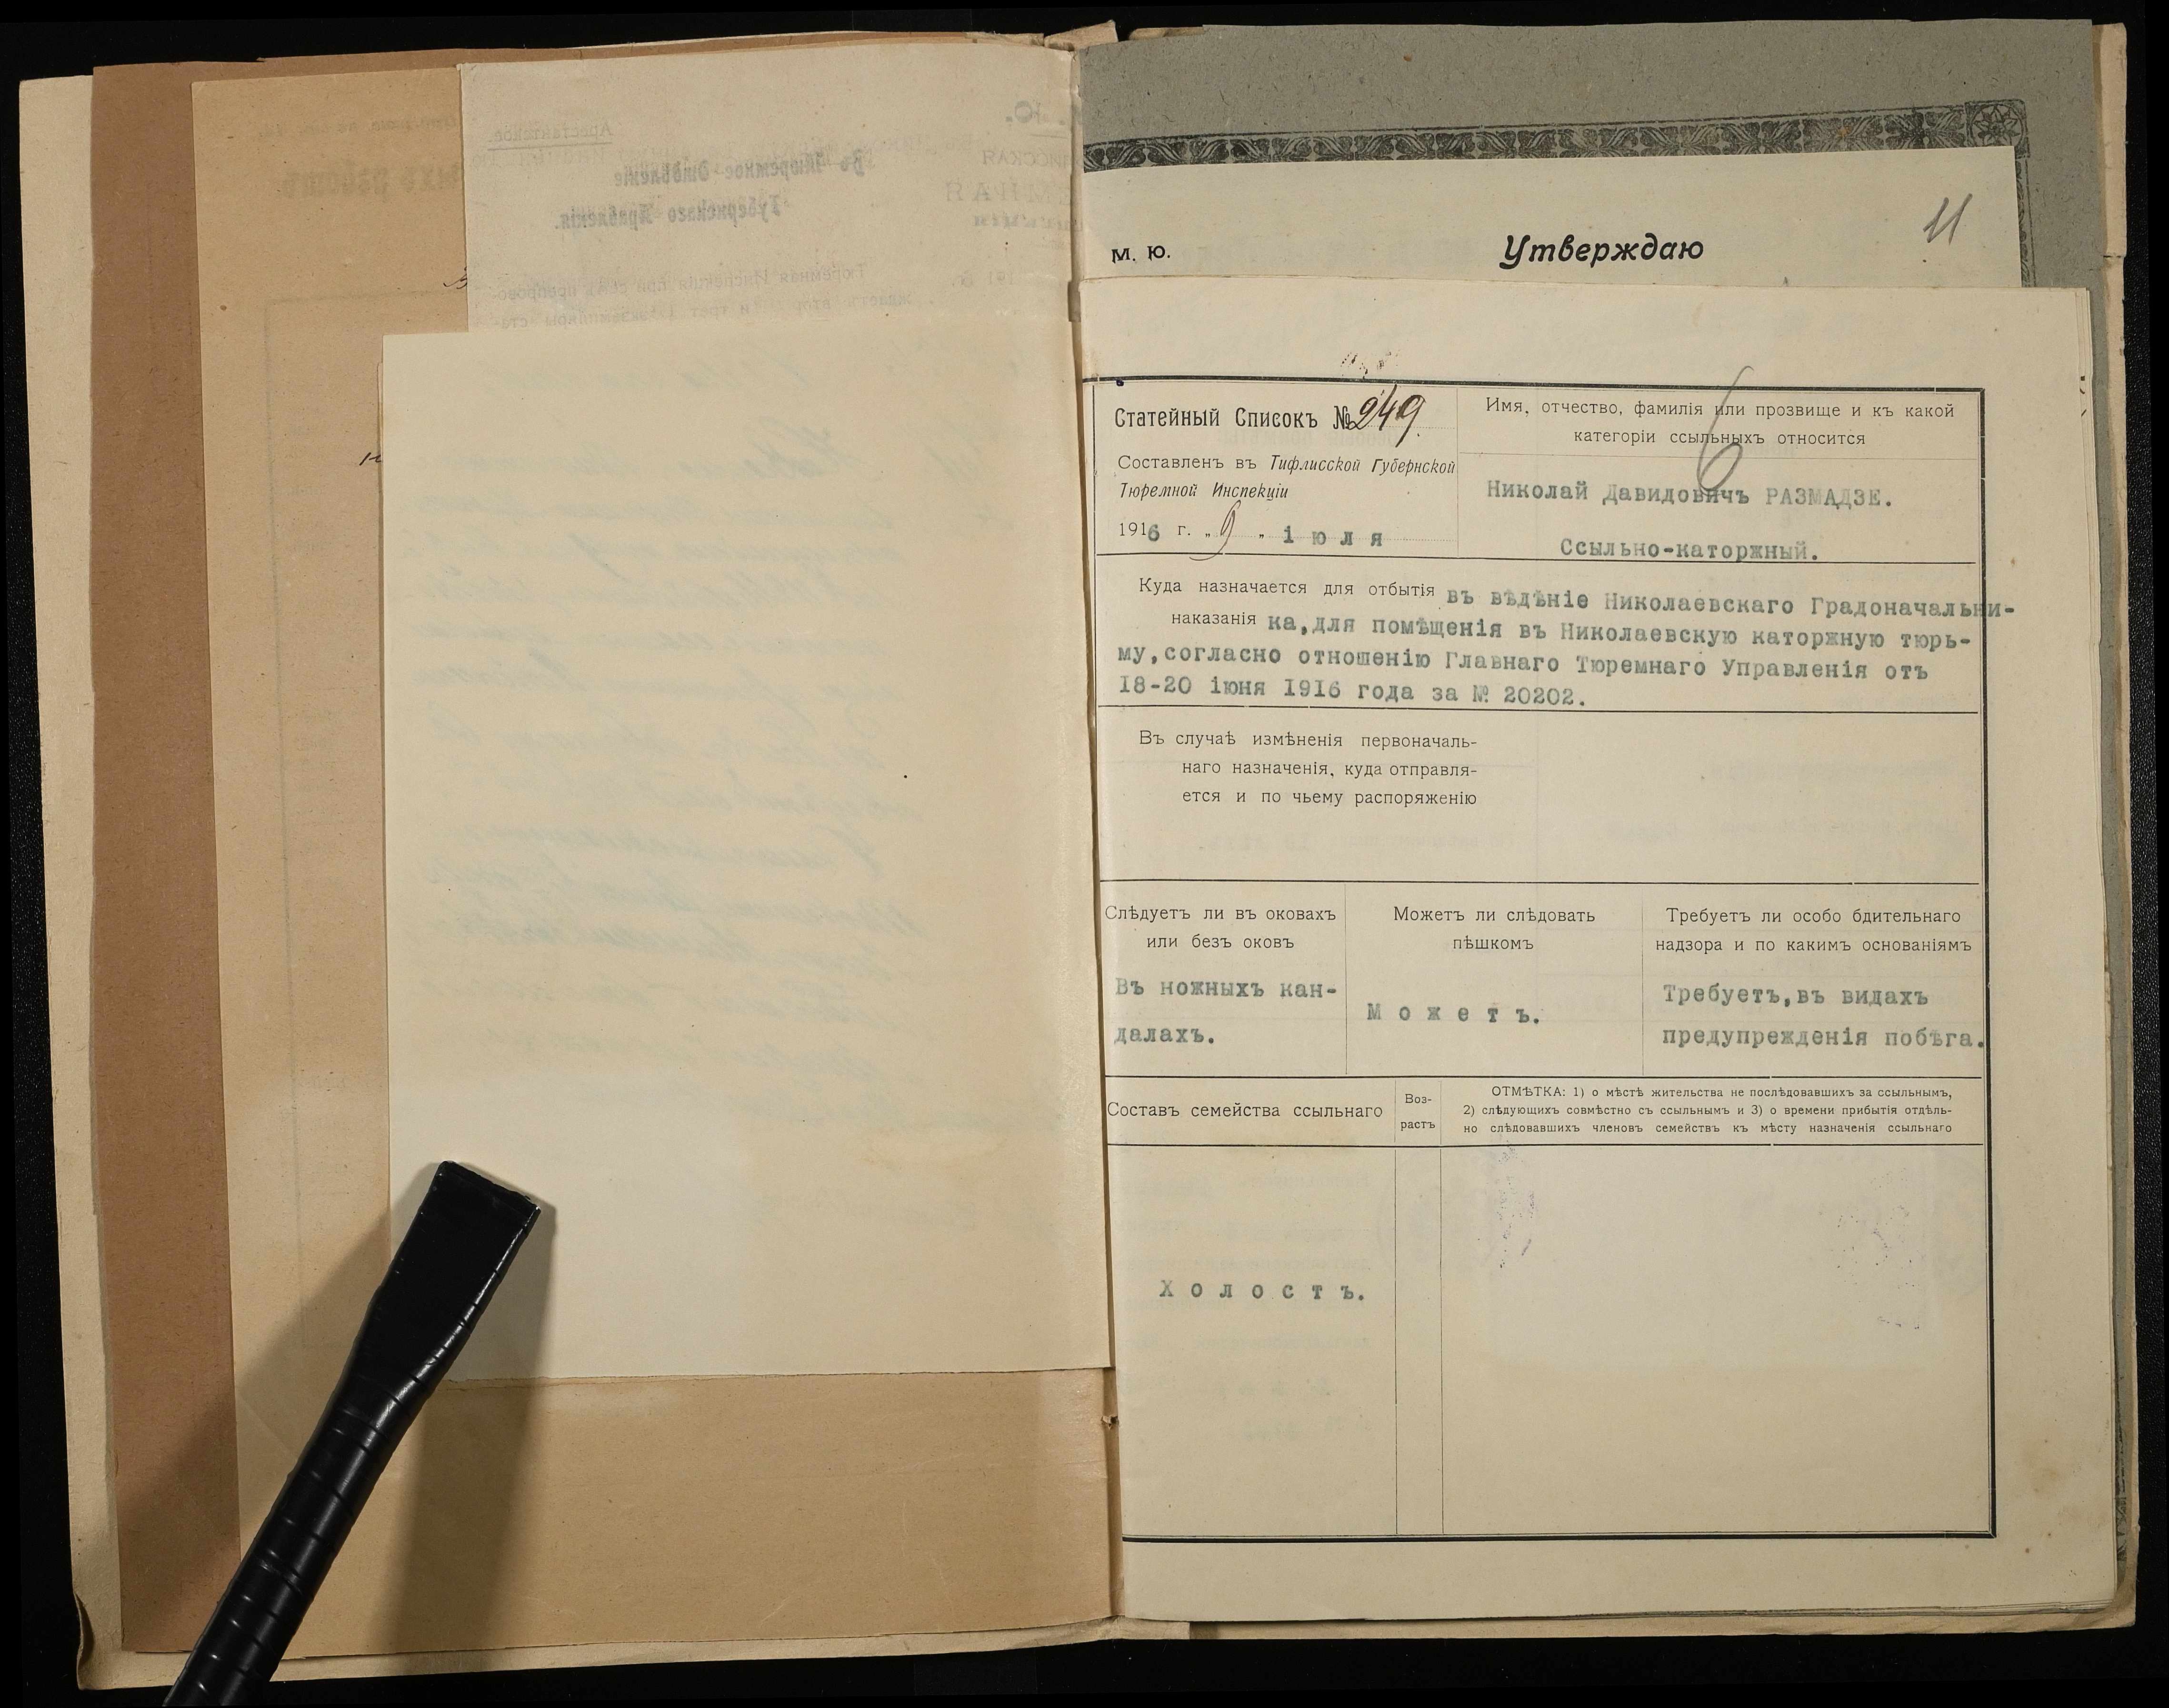 М. Ю.
Утверждаю
11
6
Статейный Списокъ № 249.
Составленъ въ Тифлисской Губернской
Тюремной Инспекціи
1916 г. „9„ іюля
Имя, отчество, фамилія или прозвище и къ какой
категоріи ссыльныхъ относится
Николай Давидовичъ РАЗМАДЗЕ.
Ссыльно-каторжный.
Куда назначается для отбытія въ вѣдѣніе Николаевскаго Градоначальни-
наказанія ка,для помѣщенія въ Николаевскую каторжную тюрь-
му,согласно отношенію Главнаго Тюремнаго Управленія отъ
18-20 іюня 1916 года за № 20202.
Въ случаѣ измѣненія первоначаль-
наго назначенія, куда отправля-
ется и по чьему распоряженію
Слѣдуетъ ли въ оковахъ
или безъ оковъ
Въ ножныхъ кан-
далахъ.
Можетъ ли слѣдовать
пѣшкомъ
Можетъ.
Требуетъ ли особо бдительнаго
надзора и по какимъ основаніямъ
Требуетъ,въ видахъ
предупрежденія побѣга.
Составъ семейства ссыльнаго
Воз-
растъ
ОТМѢТКА: 1) о мѣстѣ жительства не послѣдовавшихъ за ссыльнымъ,
2) слѣдующихъ совмѣстно съ ссыльнымъ и 3) о времени прибытія отдѣль-
но слѣдовавшихъ членовъ семействъ къ мѣсту назначенія ссыльнаго
Холостъ.